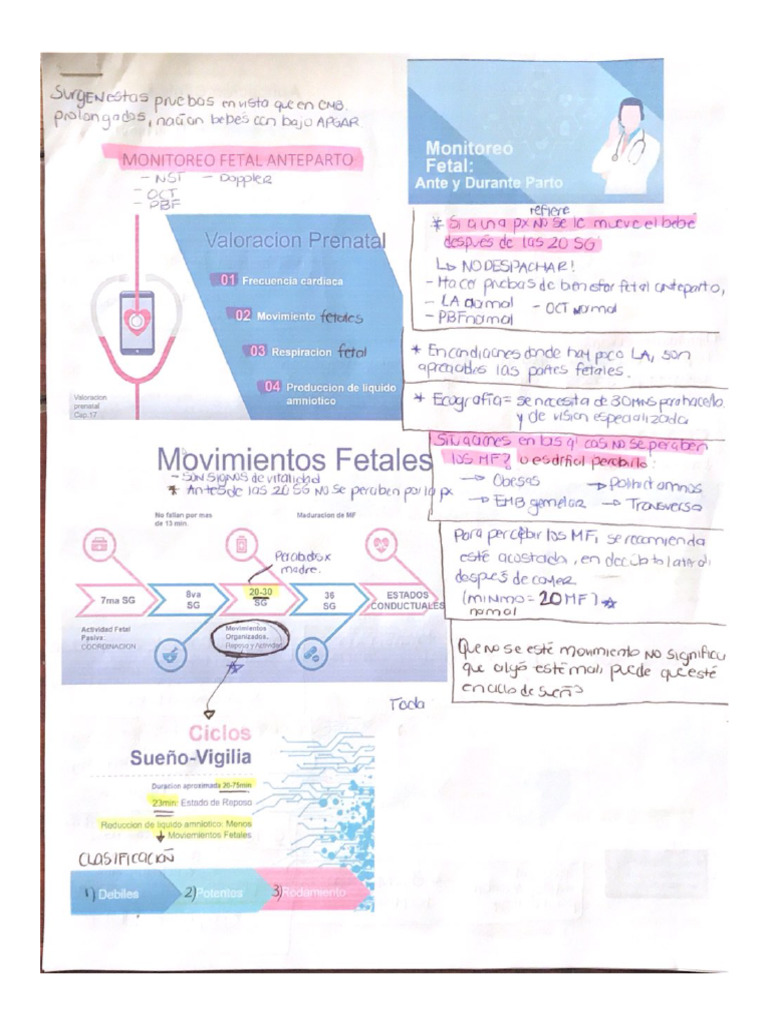 SurgEN estas pruebas en vista que en EMB.
prolongados, nacían bebes con bajo APGAR
MONITOREO FETAL ANTEPARTO
- NST - Doppler
- OCT
- PBF
Monitoreo
Fetal:
Ante y Durante Parto
Valoracion Prenatal
01 Frecuencia cardiaca
02 Movimiento fetales
03 Respiracion fetal
04 Produccion de liquido
amniotico
Valoracion
prenatal
Cap.17
refiere
* Si a una px NO se le mueve el bebé
después de las 20 SG
↳ NO DESPACHAR!
- Hacer pruebas de bienestar fetal anteparto,
- LA normal - OCT normal
- PBF normal
* En condiciones donde hay poco LA, son
apretados las partes fetales.
* Ecografía = se necesita de 30 mns para hacerlo
y de vision especializada
Situaciones en las q' casi NO se perciben
los MF? o es difícil percibirlo:
→ Obesas → Polihidramnos
→ EMB gemelar → Transverso
Para percibir los MF, se recomienda
esté acostada, en decúbito lateral
despues de comer
(mínimo = 20 MF) *
normal
Que no se esté movimiento NO significa
que algo esté mal, puede que esté
en ciclo de sueño
Movimientos Fetales
- SON SIGNOS de vitalidad
* Antes de las 20 SG NO se perciben por la px
No faltan por mas
de 13 min.
Maduracion de MF
Percibidos x
madre.
7ma SG
8va
SG
20-30
SG
36
SG
ESTADOS
CONDUCTUALES
Actividad Fetal
Pasiva.
COORDINACION
Movimientos
Organizados.
Reposo y Actividad
Toda
Ciclos
Sueño-Vigilia
Duracion aproximada 20-75min
23min: Estado de Reposo
Reduccion de liquido amniotico: Menos
↓ Moviemientos Fetales
CLASIFICACIÓN
1) Debiles
2) Potentes
3) Rodamiento